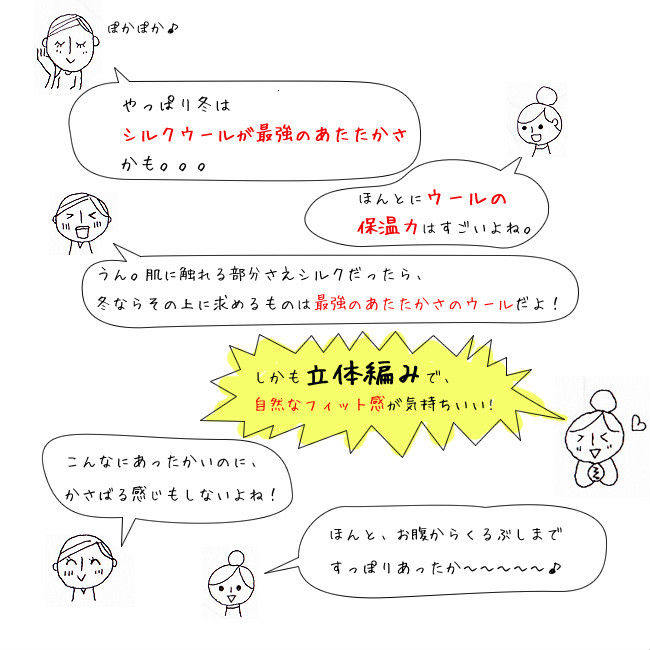 ぽかぽか♪
やっぱり冬は
シルクウールが最強のあたたかさ
かも。。。
ほんとにウールの
保温力はすごいよね。
うん。肌に触れる部分さえシルクだったら、
冬ならその上に求めるものは最強のあたたかさのウールだよ！
しかも立体編みで、
自然なフィット感が気持ちいい!
こんなにあったかいのに、
かさばる感じもしないよね！
ほんと、お腹からくるぶしまで
すっぽりあったか〜〜〜〜〜♪